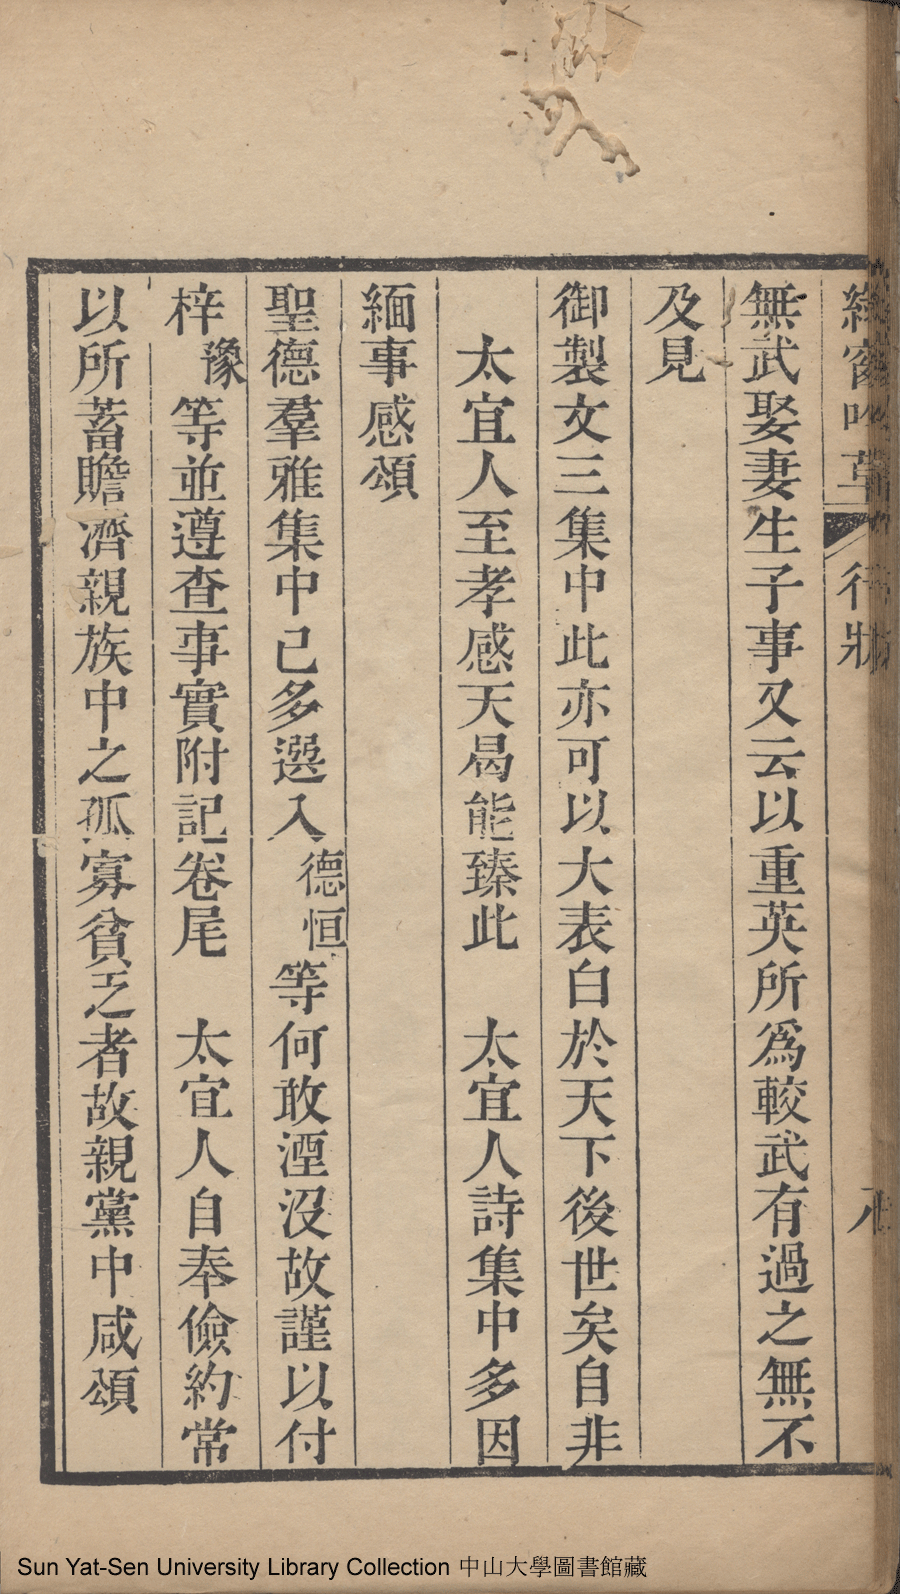 行狀
八
無武娶妻生子事又云以重英所爲較武有過之無不
及見
御製文三集中此亦可以大表白於天下後世矣自非
太宜人至孝感天曷能臻此　太宜人詩集中多因
緬事感頌
聖德羣雅集中已多選入德恒等何敢湮沒故謹以付
梓豫等並遵查事實附記卷尾　太宜人自奉儉約常
以所蓄贍濟親族中之孤寡貧乏者故親黨中咸頌
Sun Yat-Sen University Library Collection 中山大學圖書館藏